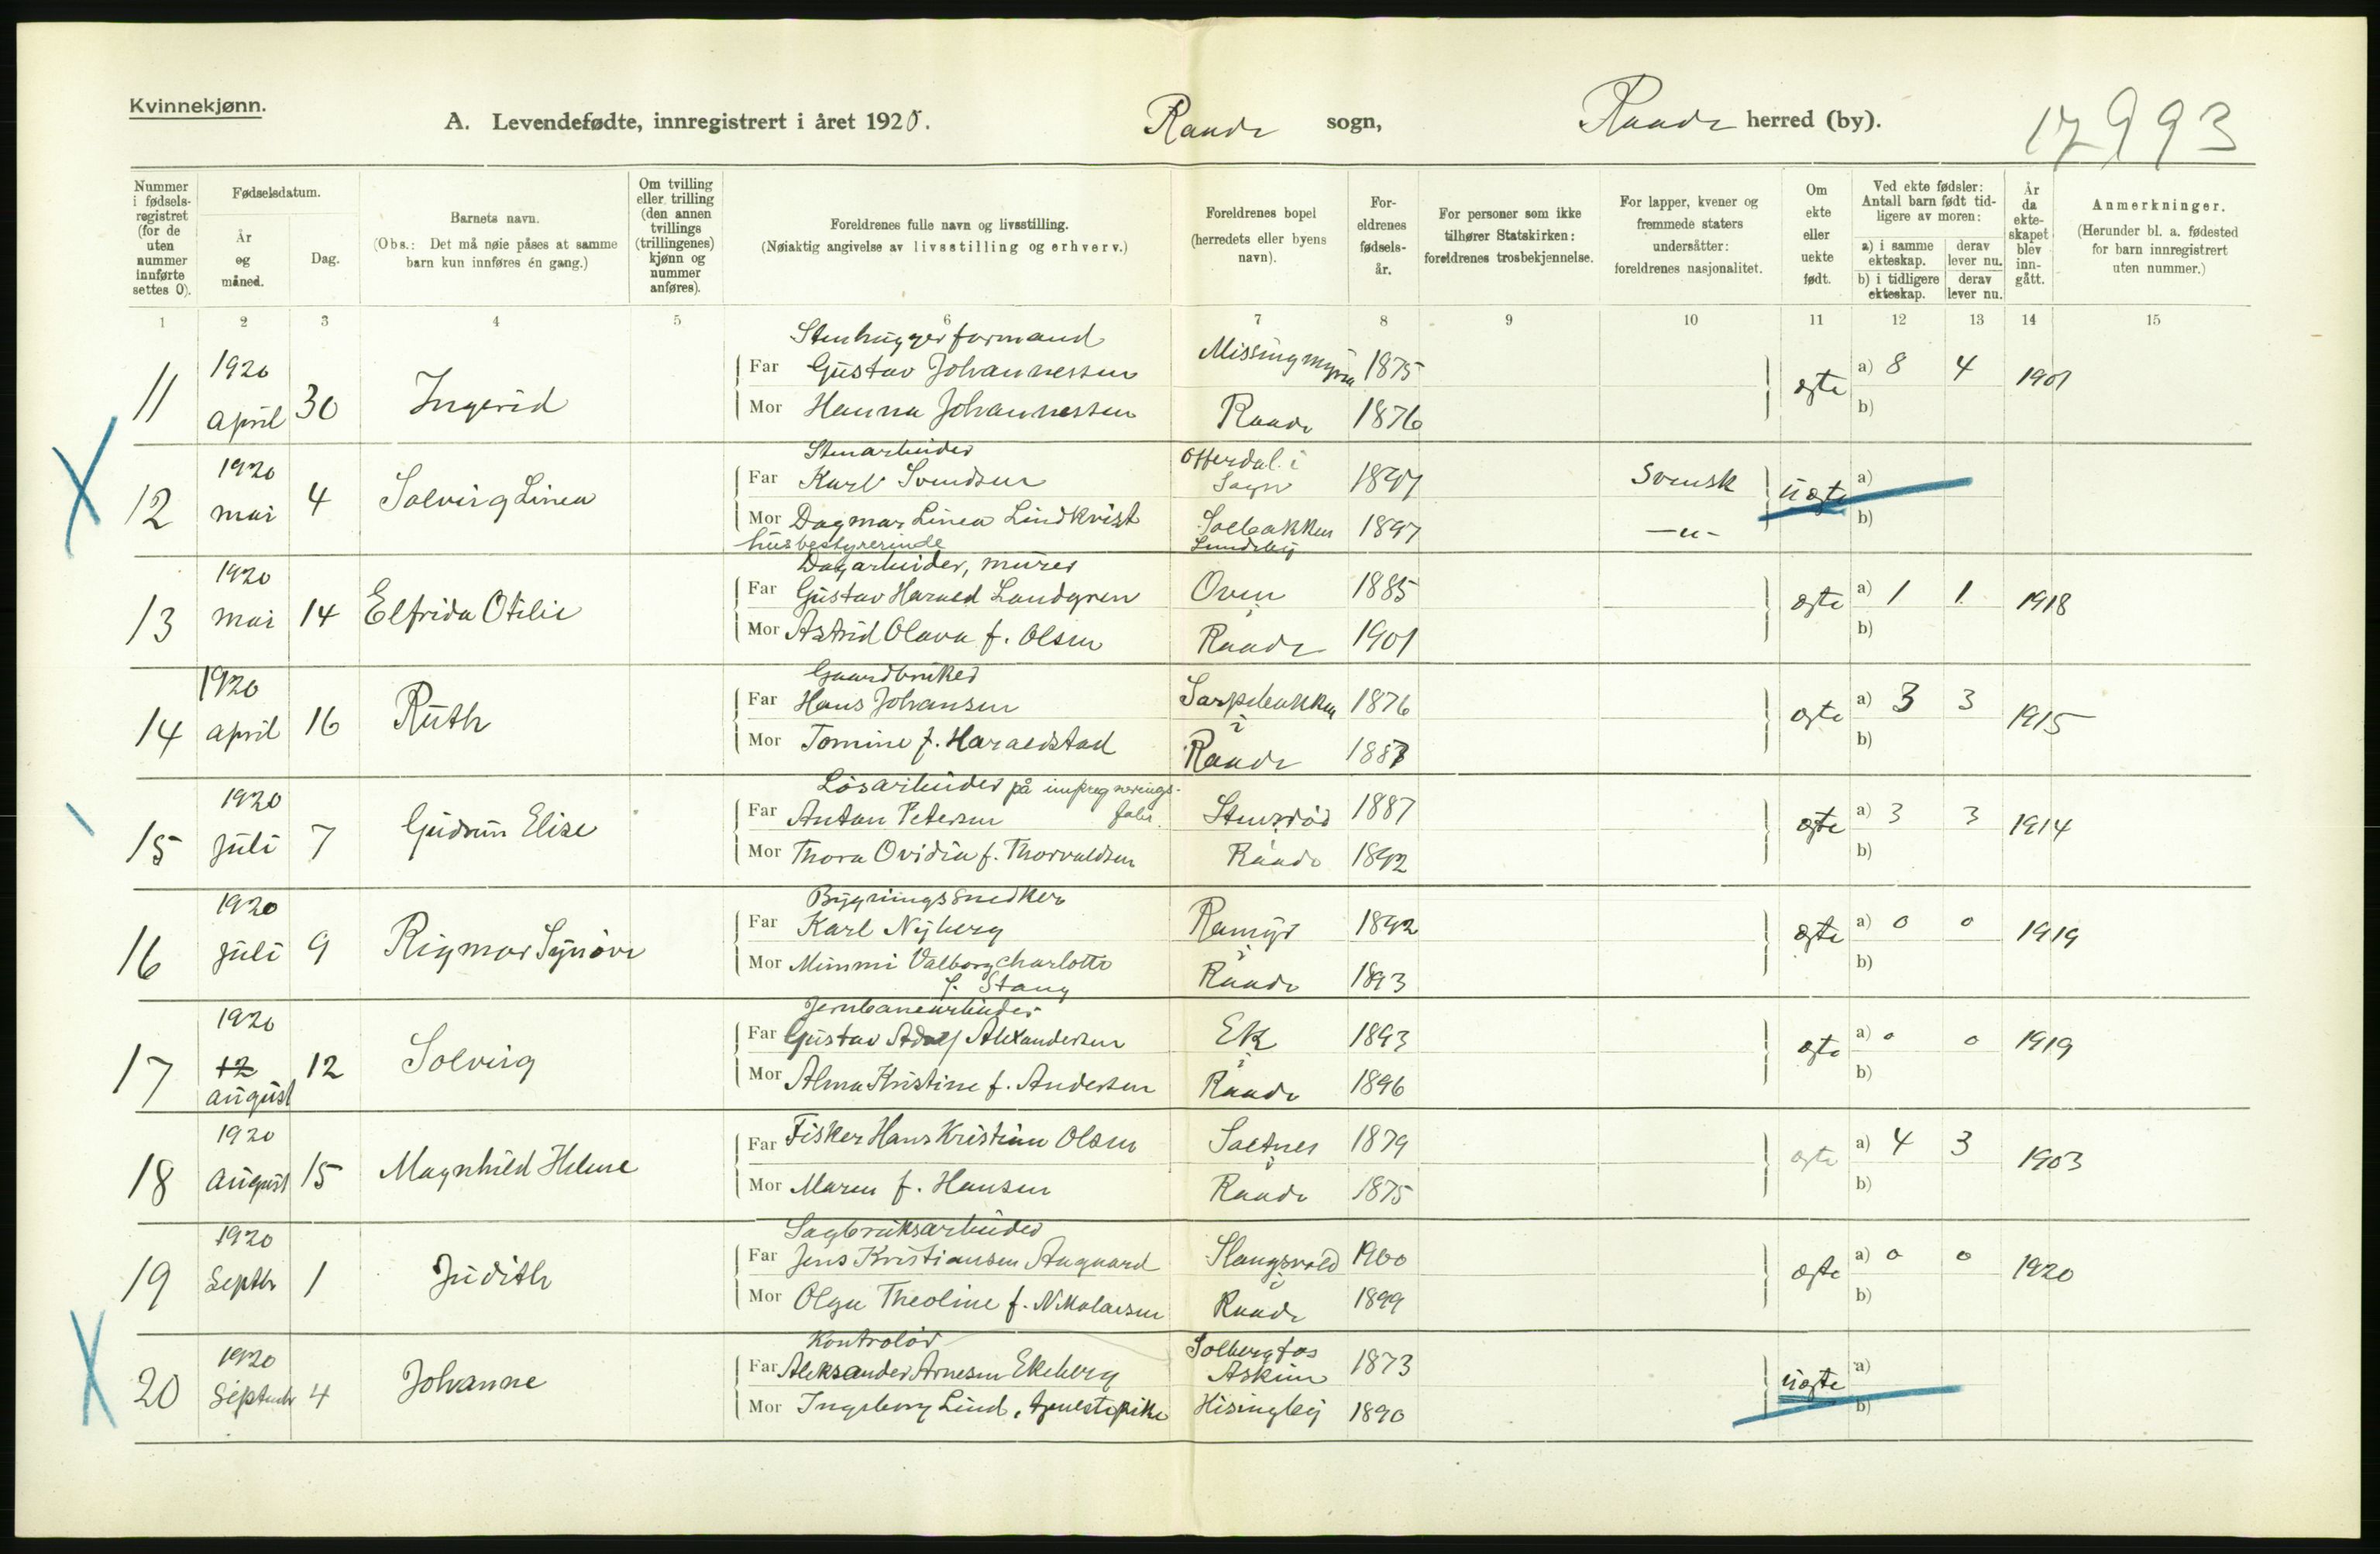 Kvinnekjønn.
A. Levendefødte, innregistrert i året 1920. Raade sogn, Raade herred (by). 17993
Nummer i fødselsregistret (for de uten nummer innførte settes 0).
Fødselsdatum.
År og måned.
Dag.
Barnets navn.
(Obs.: Det må nøie påses at samme barn kun innføres én gang.)
Om tvilling eller trilling (den annen tvillings (trillingenes) kjønn og nummer anføres).
Foreldrenes fulle navn og livsstilling.
(Nøiaktig angivelse av livsstilling og erhverv.)
Foreldrenes bopel (herredets eller byens navn).
Foreldrenes fødselsår.
For personer som ikke tilhører Statskirken: foreldrenes trosbekjennelse.
For lapper, kvener og fremmede staters undersåtter: foreldrenes nasjonalitet.
Om ekte eller uekte født.
Ved ekte fødsler: Antall barn født tidligere av moren:
a) i samme ekteskap. derav lever nu.
b) i tidligere ekteskap. derav lever nu.
År da ekteskapet blev inngått.
Anmerkninger.
(Herunder bl. a. fødested for barn innregistrert uten nummer.)
1 2 3 4 5 6 7 8 9 10 11 12 13 14 15
Stenhuggerformand
11 1920 april 30 Ingerid
Far Gustav Johannessen Missingmyra 1875 ægte a) 8 4 1901
Mor Hanna Johannessen Raade 1876 b)
Stenarbeider
12 1920 mai 4 Solveig Linea
Far Karl Svendsen i Sogn 1897 Svensk uægte a)
Mor Dagmar Linea Lindkvist Solbakken 1897 —"— b)
husbestyrerinde Lundeby
Dagarbeider, murer
13 1920 mai 14 Elfrida Otilie
Far Gustav Harald Landgren Oven i 1885 ægte a) 1 1 1918
Mor Astrid Olava f. Olsen Raade 1901 b)
Gaardbruker
14 1920 april 16 Ruth
Far Hans Johansen Sarpebakken i 1876 ægte a) 3 3 1915
Mor Tomine f. Haraldstad Raade b)
Løsarbeider på impregnerings-
fabr.
15 1920 juli 7 Gudrun Elise
Far Anton Petersen Stensrød i 1887 ægte a) 3 3 1914
Mor Thora Ovidia f. Thorvaldsen Raade 1892 b)
Bygningssnedker
16 1920 juli 9 Rigmor Synøve
Far Karl Nyberg Ramyr i 1892 ægte a) 0 0 1919
Mor Mimmi Valborg Charlotte Raade 1893 b)
f. Stang
Jernbanearbeider
17 1920 12 august 12 Solveig
Far Gustav Adolf Alexandersen Ek i 1893 ægte a) 0 0 1919
Mor Alma Kristine f. Andersen Raade 1896 b)
18 1920 august 15 Magnhild Helene
Far Fisker Hans Kristian Olsen Saltnes i 1879 ægte a) 4 3 1903
Mor Maren f. Hansen Raade 1875 b)
Sagbruksarbeider
19 1920 Septbr 1 Judith
Far Jens Kristiansen Augaard Slangsvold i 1900 ægte a) 0 0 1920
Mor Olga Theoline f. Nikolaisen Raade 1899 b)
Kontrolør
20 1920 Septembr 4 Johanne
Far Aleksander Arnesen Ekeberg Solbergfos Askim 1873 uægte a)
Mor Ingeborg Lind, tjenestepike Hisingbej 1890 b)